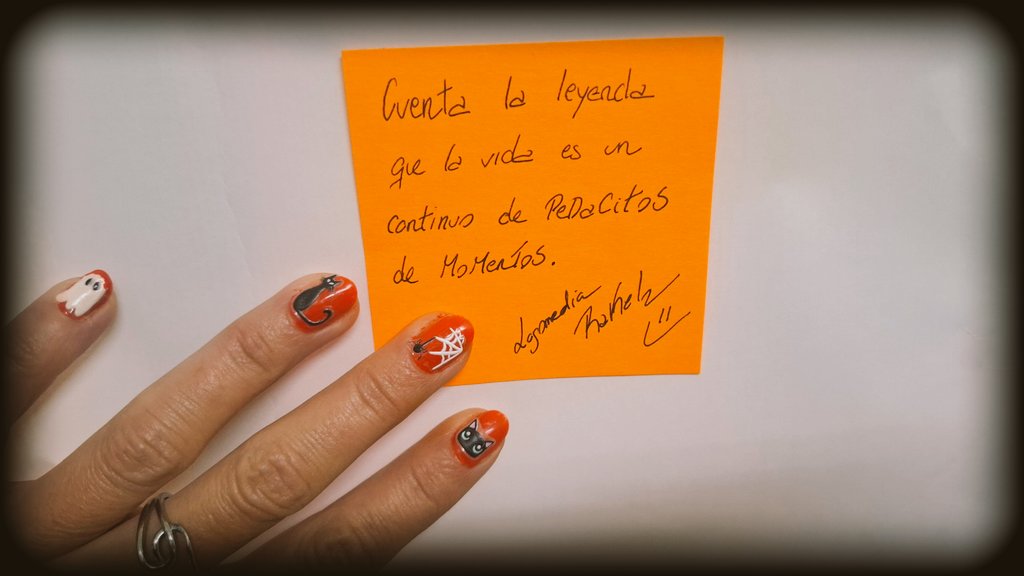 Cuenta la leyenda
que la vida es un
continuo de PeDaCitoS
de MoMenToS.